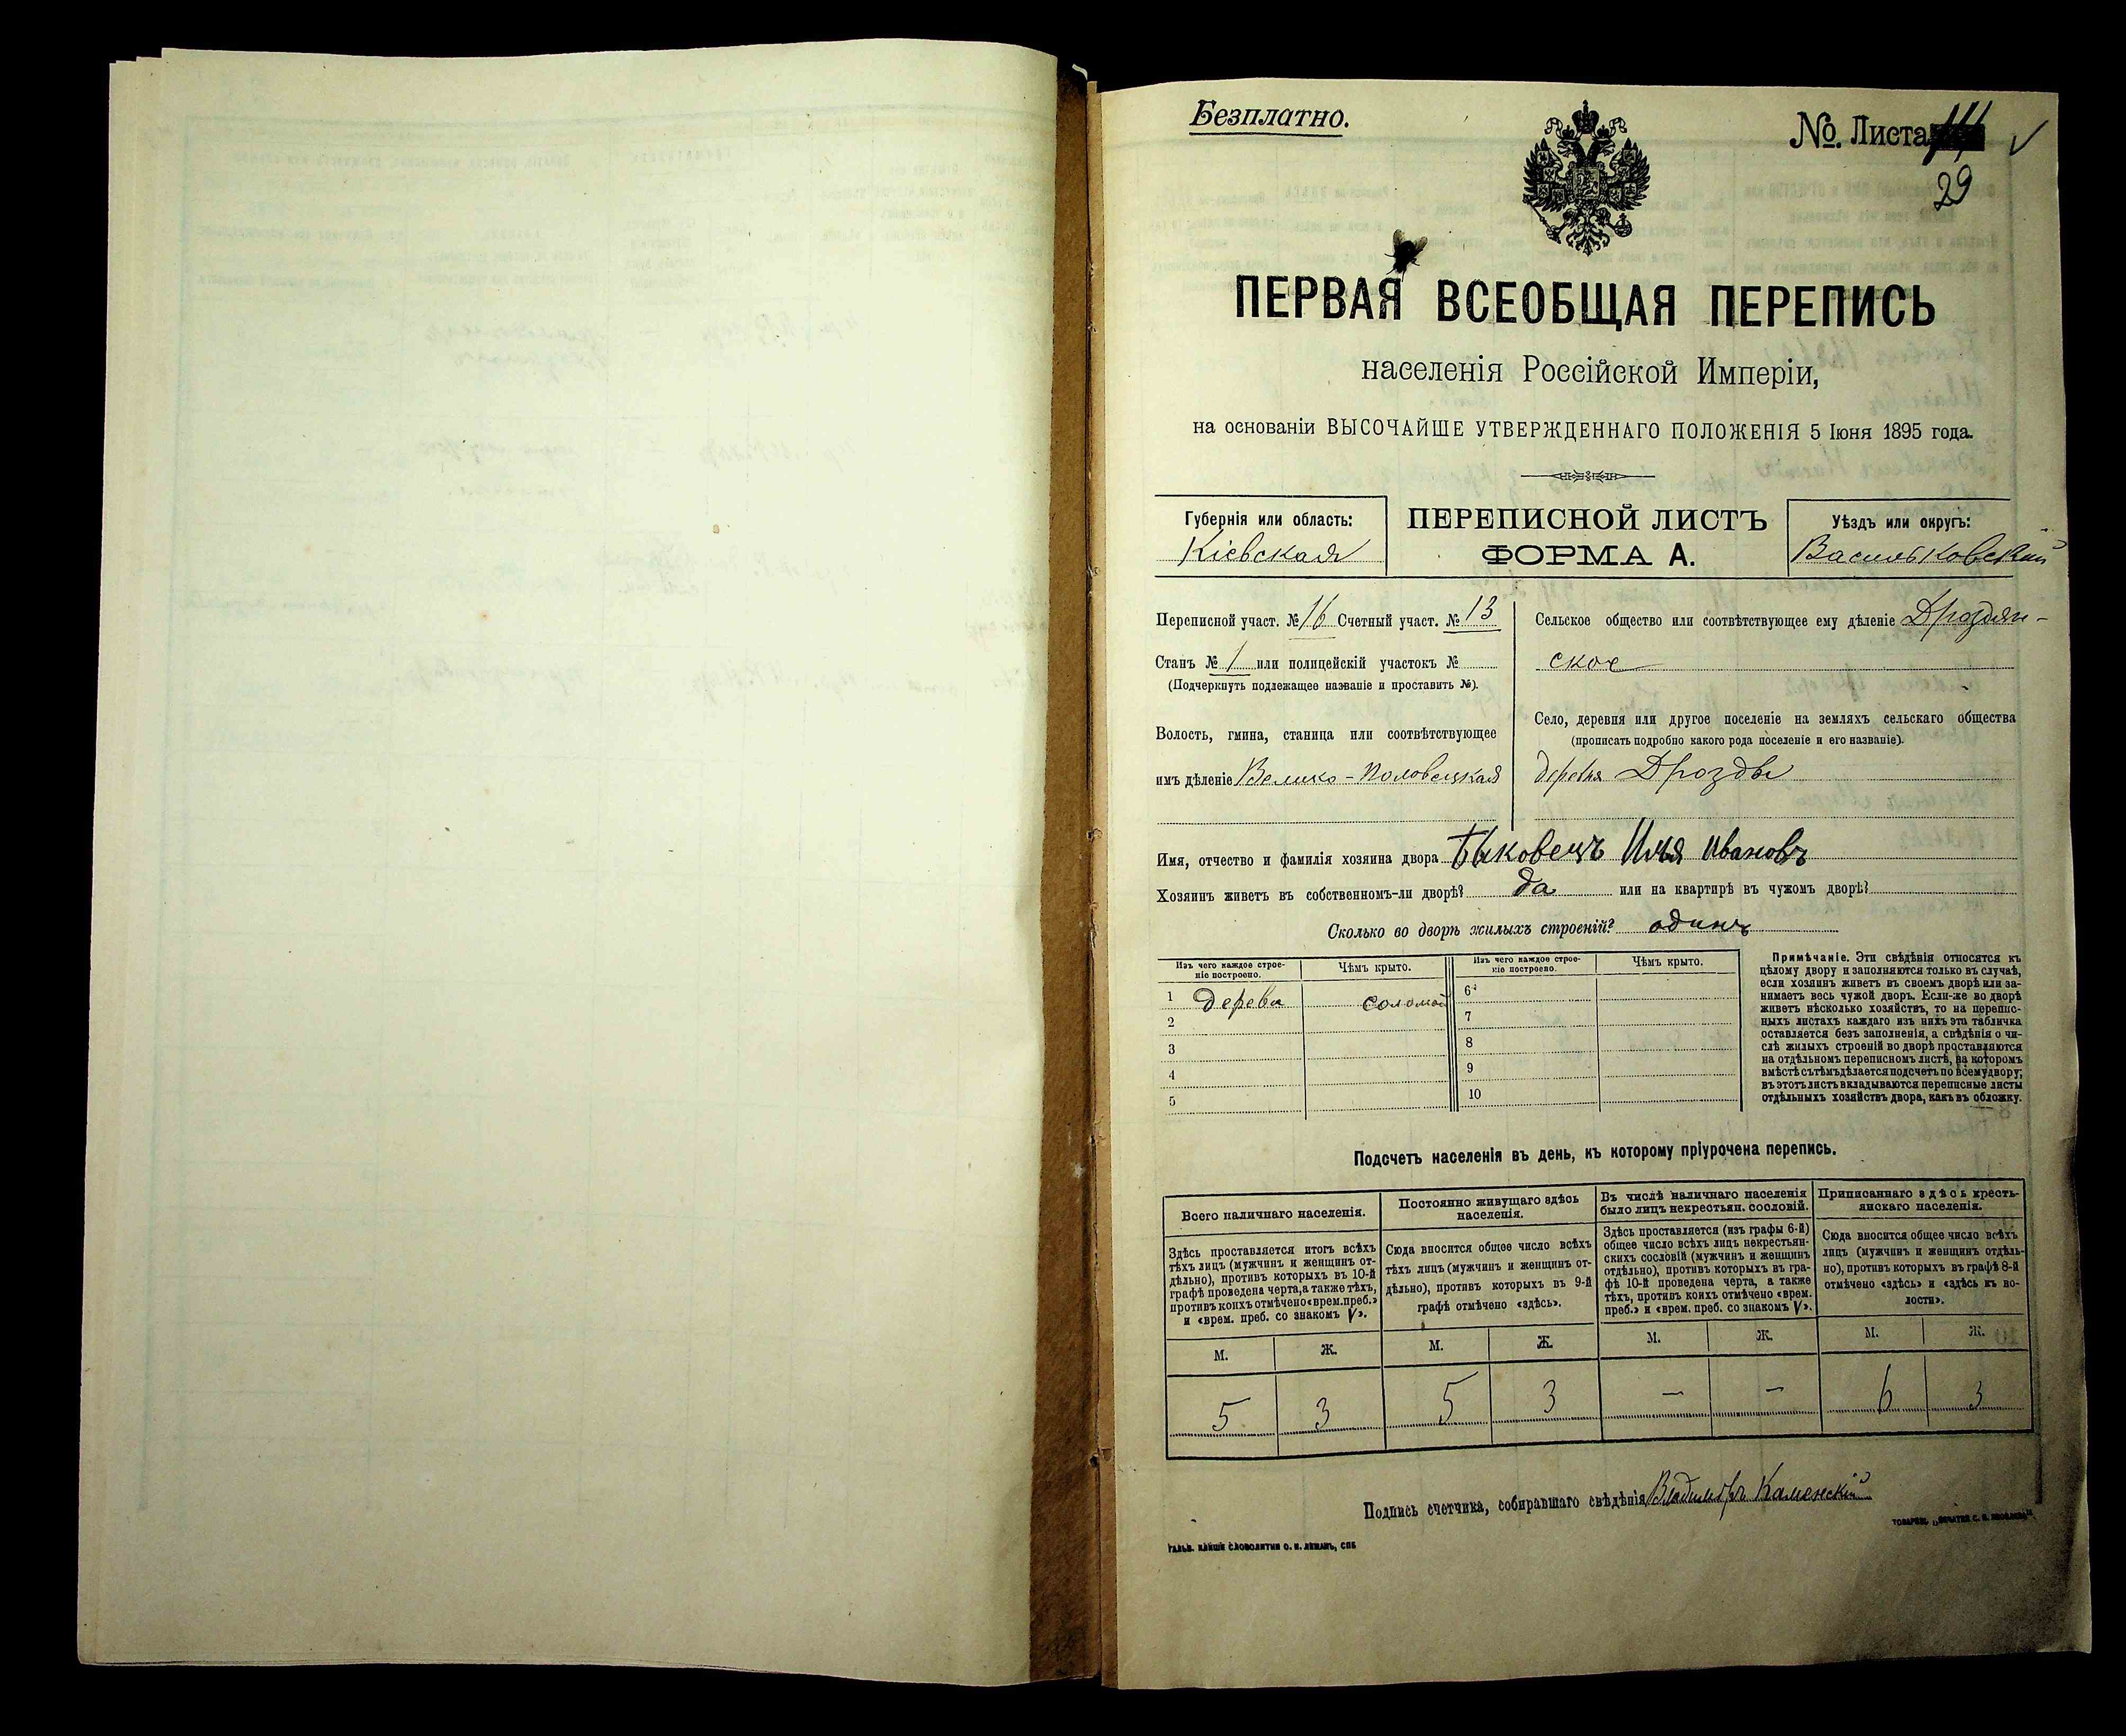 Безплатно.
№. Листа
29
ПЕРВАЯ ВСЕОБЩАЯ ПЕРЕПИСЬ
населенія Россійской Имперіи,
на основаніи ВЫСОЧАЙШЕ УТВЕРЖДЕННАГО ПОЛОЖЕНІЯ 5 Іюня 1895 года.
Губернія или область:
Кіевская
ПЕРЕПИСНОЙ ЛИСТЪ
ФОРМА А.
Уѣздъ или округъ:
Васильковскій
Переписной участ. № 16 Счетный участ. № 13
Станъ № 1 или полицейскій участокъ №
(Подчеркнуть подлежащее названіе и проставить №).
Волость, гмина, станица или соотвѣтствующее
имъ дѣленіе Велико-Половецкая
Сельское общество или соотвѣтствующее ему дѣленіе Дроздян-
ское
Село, деревня или другое поселеніе на земляхъ сельскаго общества
(прописать подробно какого рода поселеніе и его названіе).
деревня Дрозды
Имя, отчество и фамилія хозяина двора Быковецъ Илья Ивановъ
Хозяинъ живетъ въ собственномъ-ли дворѣ? да или на квартирѣ въ чужомъ дворѣ?
Сколько во дворѣ жилыхъ строеній? одинъ
Изъ чего каждое строе-
ніе построено.
Чѣмъ крыто.
Изъ чего каждое строе-
ніе построено.
Чѣмъ крыто.
1 дерева соломой
2
3
4
5
6
7
8
9
10
Примѣчаніе. Эти свѣдѣнія относятся къ
цѣлому двору и заполняются только въ случаѣ,
если хозяинъ живетъ въ своемъ дворѣ или за-
нимаетъ весь чужой дворъ. Если-же во дворѣ
живетъ нѣсколько хозяйствъ, то на перепис-
ныхъ листахъ каждаго изъ нихъ эта табличка
оставляется безъ заполненія, а свѣдѣнія о чи-
слѣ жилыхъ строеній во дворѣ проставляются
на отдѣльномъ переписномъ листѣ, на которомъ
вмѣстѣ съ тѣмъ дѣлается подсчетъ по всему двору;
въ этотъ листъ вкладываются переписные листы
отдѣльныхъ хозяйствъ двора, какъ въ обложку.
Подсчетъ населенія въ день, къ которому пріурочена перепись.
Всего наличнаго населенія.
Здѣсь проставляется итогъ всѣхъ
тѣхъ лицъ (мужчинъ и женщинъ от-
дѣльно), противъ которыхъ въ 10-й
графѣ проведена черта, а также тѣхъ,
противъ коихъ отмѣчено «врем. преб.»
и «врем. преб. со знакомъ V».
Постоянно живущаго здѣсь
населенія.
Сюда вносится общее число всѣхъ
тѣхъ лицъ (мужчинъ и женщинъ от-
дѣльно), противъ которыхъ въ 9-й
графѣ отмѣчено «здѣсь».
Въ числѣ наличнаго населенія
было лицъ некрестьян. сословій.
Здѣсь проставляется (изъ графы 6-й)
общее число всѣхъ лицъ некрестьян-
скихъ сословій (мужчинъ и женщинъ
отдѣльно), противъ которыхъ въ гра-
фѣ 10-й проведена черта, а также
тѣхъ, противъ коихъ отмѣчено «врем.
преб.» и «врем. преб. со знакомъ V».
Приписаннаго здѣсь кресть-
янскаго населенія.
Сюда вносится общее число всѣхъ
лицъ (мужчинъ и женщинъ отдѣль-
но), противъ которыхъ въ графѣ 8-й
отмѣчено «здѣсь» и «здѣсь въ во-
лости».
М. Ж. М. Ж. М. Ж. М. Ж.
5 3 5 3 — — 6 3
Подпись счетчика, собиравшаго свѣдѣнія Владиміръ Каменскій